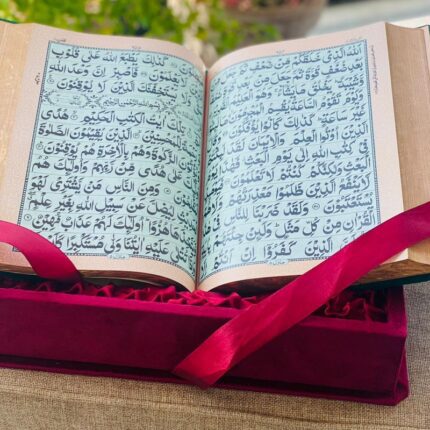 اَللّٰهُ الَّذِیْ خَلَقَكُمْ مِّنْ ضُعْفٍ ثُمَّ جَعَلَ مِنْۢ
بَعْدِ ضُعْفٍ قُوَّةً ثُمَّ جَعَلَ مِنْۢ بَعْدِ قُوَّةٍ
ضُعْفًا وَّشَیْبَةً یَخْلُقُ مَا یَشَآءُ وَهُوَ الْعَلِیْمُ الْقَدِیْرُ
وَیَوْمَ تَقُوْمُ السَّاعَةُ یُقْسِمُ الْمُجْرِمُوْنَ مَا لَبِثُوْا
غَیْرَ سَاعَةٍ كَذٰلِكَ كَانُوْا یُؤْفَكُوْنَ وَقَالَ
الَّذِیْنَ اُوْتُوا الْعِلْمَ وَالْاِیْمَانَ لَقَدْ لَبِثْتُمْ
فِیْ كِتٰبِ اللّٰهِ اِلٰى یَوْمِ الْبَعْثِ فَهٰذَا یَوْمُ
الْبَعْثِ وَلٰكِنَّكُمْ كُنْتُمْ لَا تَعْلَمُوْنَ فَیَوْمَئِذٍ
لَّا یَنْفَعُ الَّذِیْنَ ظَلَمُوْا مَعْذِرَتُهُمْ وَلَا هُمْ
یُسْتَعْتَبُوْنَ وَلَقَدْ ضَرَبْنَا لِلنَّاسِ فِیْ هٰذَا
الْقُرْاٰنِ مِنْ كُلِّ مَثَلٍ وَلَئِنْ جِئْتَهُمْ
الَّذِیْنَ كَفَرُوْۤا اِنْ
كَذٰلِكَ یَطْبَعُ اللّٰهُ عَلٰى قُلُوْبِ
لَا یَعْلَمُوْنَ فَاصْبِرْ اِنَّ وَعْدَ اللّٰهِ
یَسْتَخِفَّنَّكَ الَّذِیْنَ لَا یُوْقِنُوْنَ
بِسْمِ اللّٰهِ الرَّحْمٰنِ الرَّحِیْمِ
تِلْكَ اٰیٰتُ الْكِتٰبِ الْحَكِیْمِ هُدًى
لِّلْمُحْسِنِیْنَ الَّذِیْنَ یُقِیْمُوْنَ الصَّلٰوةَ
الزَّكٰوةَ وَهُمْ بِالْاٰخِرَةِ هُمْ یُوْقِنُوْنَ
عَلٰى هُدًى مِّنْ رَّبِّهِمْ وَاُولٰٓئِكَ هُمُ
وَمِنَ النَّاسِ مَنْ یَّشْتَرِیْ لَهْوَ
لِیُضِلَّ عَنْ سَبِیْلِ اللّٰهِ بِغَیْرِ عِلْمٍ
هُزُوًا اُولٰٓئِكَ لَهُمْ عَذَابٌ مُّهِیْنٌ
عَلَیْهِ اٰیٰتُنَا وَلّٰى مُسْتَكْبِرًا كَاَنْ